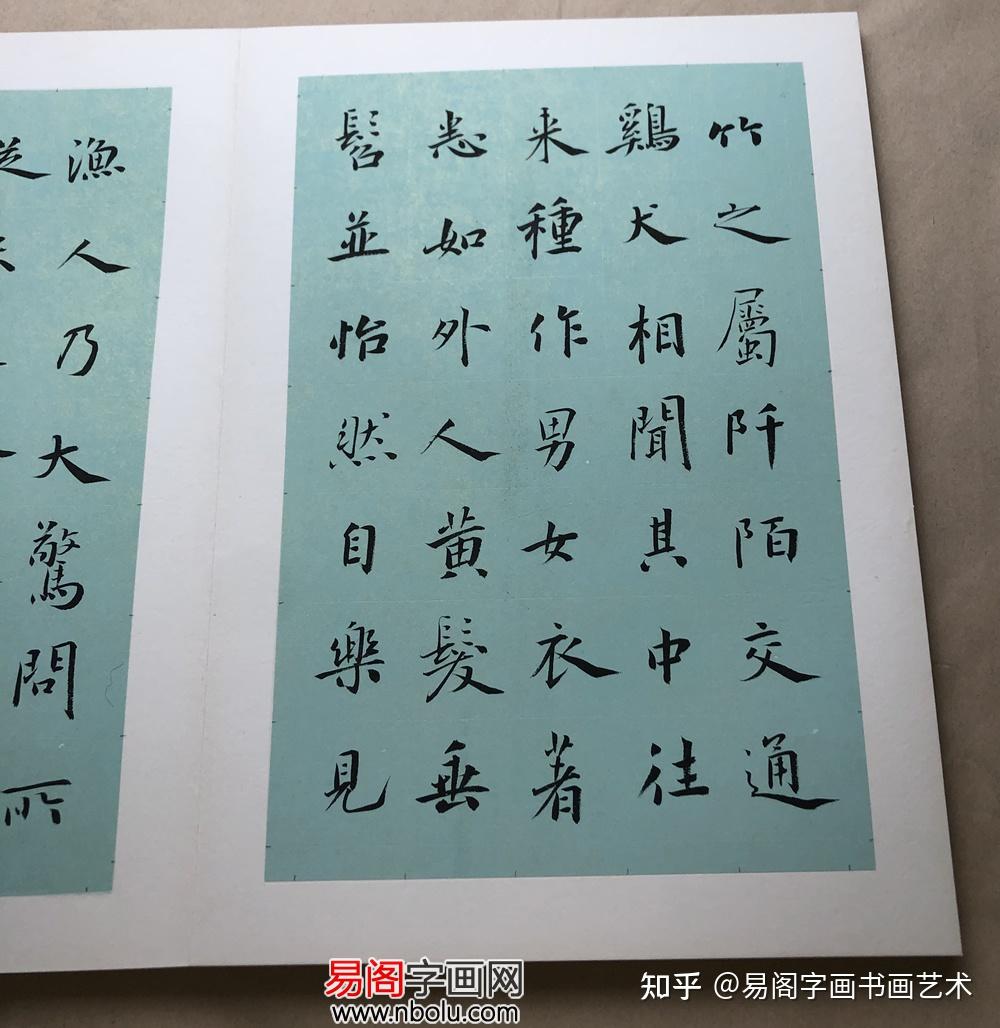 竹之屬阡陌交通
鷄犬相聞其中往
来種作男女衣著
悉如外人黄髮垂
髫並怡然自樂見
漁人乃大驚問所
易阁字画网
www.nbolu.com
知乎 @易阁字画书画艺术